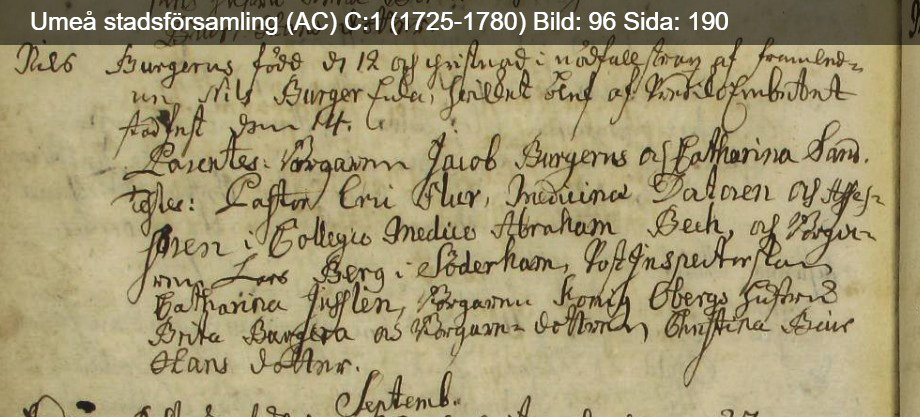 Umeå stadsförsamling (AC) C:1 (1725-1780) Bild: 96 Sida: 190
Nils Burgerus född d 12 och christnad i nödfallstvång af framlend-
Nils Burger blef af
den 14.
Parentes: Borgaren Jacob Burgerus och Catharina Sand.
Testes: Pastor Eric Flur, Medicinæ Doctoren och Asses-
soren i Collegio Medico Abraham Beck, och Borga-
ren Lars Berg i Söderham, PostInspectorskan
Catharina Borgaren Öbergs hustru
Brita Burgera och Borgare-dottren Christina
Hans dotter.
Septemb.